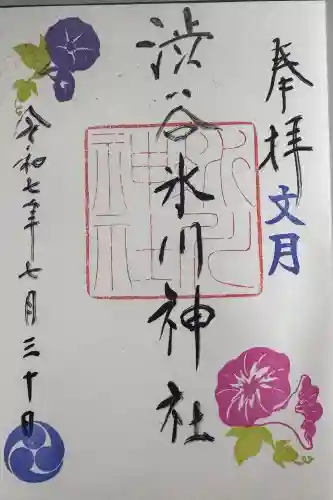 奉拝
文月
渋谷氷川神社
令和七年七月三十日